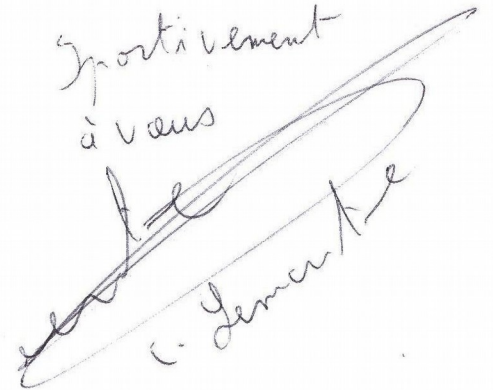 Sportivement
à vous
C. Lemaitre